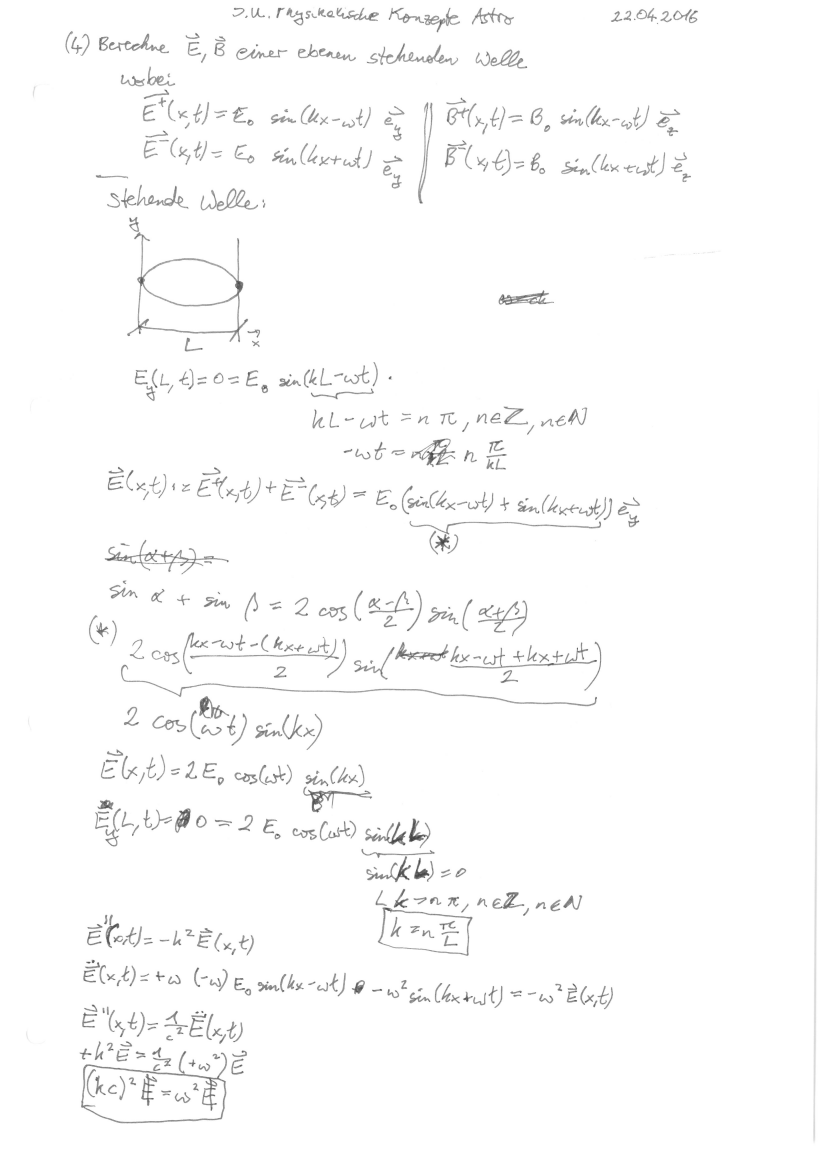 S.U. Physikalische Konzepte Astro 22.04.2016
(4) Berechne E⃗, B⃗ einer ebenen stehenden Welle
wobei
E⃗⁺(x,t) = E₀ sin(kx-ωt) e⃗_y || B⃗⁺(x,t) = B₀ sin(kx-ωt) e⃗_z
E⃗⁻(x,t) = E₀ sin(kx+ωt) e⃗_y || B⃗⁻(x,t) = B₀ sin(kx+ωt) e⃗_z
Stehende Welle:
y
L x⃗
E_y(L,t) = 0 = E₀ sin(kL-ωt).
kL-ωt = nπ, n∈ℤ, n∈ℕ
-ωt = n π/kL
E⃗(x,t) := E⃗⁺(x,t) + E⃗⁻(x,t) = E₀ (sin(kx-ωt) + sin(kx+ωt)) e⃗_y
(*)
sin(α+β) =
sin α + sin β = 2 cos((α-β)/2) sin((α+β)/2)
(*) 2 cos((kx-ωt-(kx+ωt))/2) sin((kx-ωt+kx+ωt)/2)
2 cos(ωt) sin(kx)
E⃗(x,t) = 2E₀ cos(ωt) sin(kx)
E_y(L,t) = 0 = 2 E₀ cos(ωt) sin(kL)
sin(kL) = 0
Lk = nπ, n∈ℤ, n∈ℕ
k = n π/L
E⃗''(x,t) = -k² E⃗(x,t)
E⃗̈(x,t) = +ω (-ω) E₀ sin(kx-ωt) - ω² sin(kx+ωt) = -ω² E⃗(x,t)
E⃗''(x,t) = 1/c² E⃗̈(x,t)
+k² E⃗ = 1/c² (+ω²) E⃗
(kc)² E⃗ = ω² E⃗